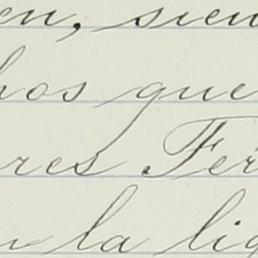 en, sien
hos que
res Fér
n la liq